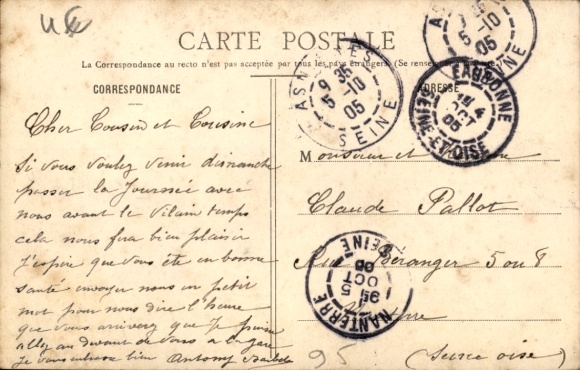 CARTE POSTALE
La Correspondance au recto n'est pas acceptée par tous les pays étrangers. (Se renseigner
CORRESPONDANCE
ADRESSE
Cher Cousin et Cousine
Si vous voulez venir dimanche
passer la Journée avec
nous avant le vilain temps
cela nous fera bien plaisir
J'espère que vous ête en bonne
santé envoyer nous un petit
mot pour nous dire l'heure
que vous arriverez que Je puisse
allez au devant de vous a la gare
Je vous embrasse bien Antony
Monsieur et
Claude Pallot
Rue Béranger 5 ou 8
(Seine oise)
95
ASNIERES
9 35
5-10
05
SEINE
5-10
05
SEINE
EAUBONNE
OCT
05
SEINE-ET-OISE
NANTERRE
5
OCT
05
SEINE